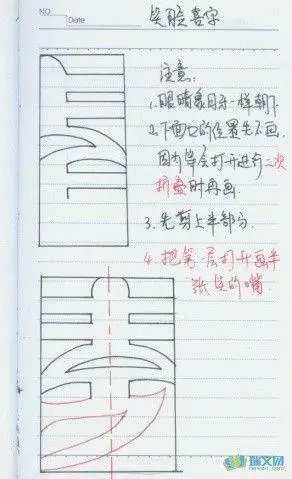 NO
Date
笑脸喜字
注意:
1.眼睛象月牙一样朝下
2.下面口的位置先不画.
因为等会打开进行二次
折叠时再画.
3.先剪上半部分.
4.把第一层打开画半
张笑的嘴.
瑞文网